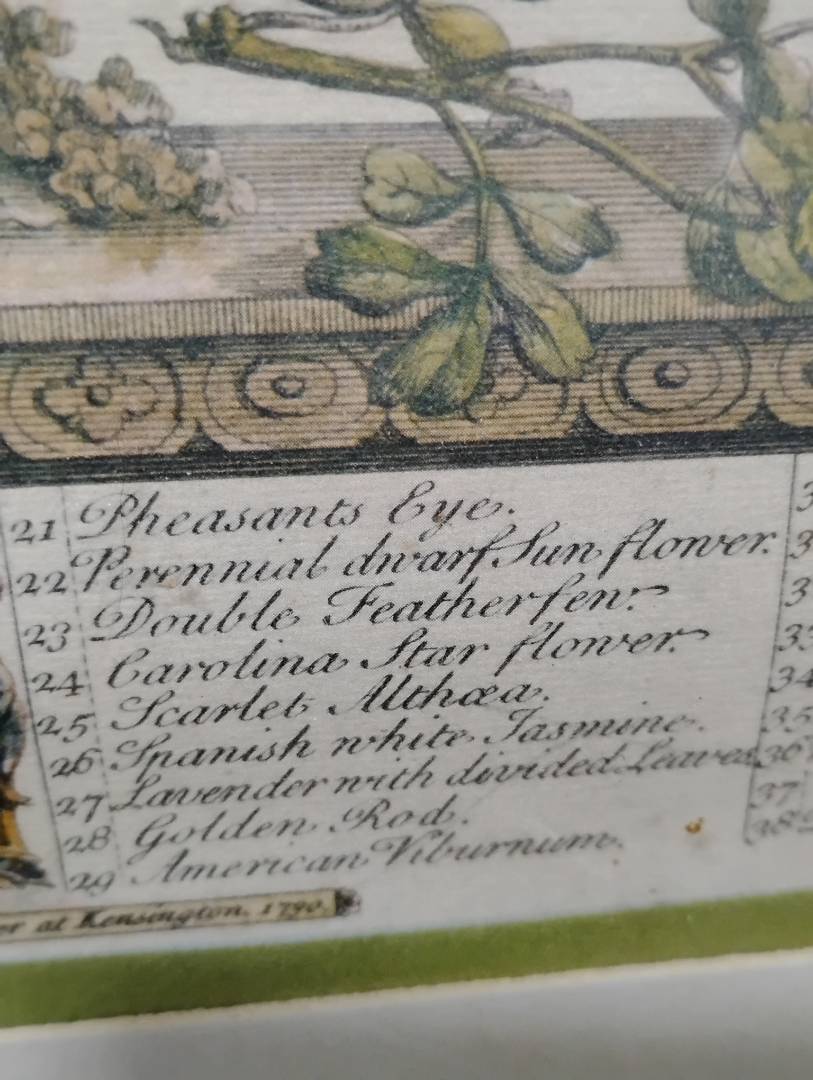 21 Pheasants Eye.
22 Perennial dwarf Sun flower.
23 Double Featherfew.
24 Carolina Star flower.
25 Scarlet Althœa.
26 Spanish white Jasmine.
27 Lavender with divided Leaves
28 Golden Rod.
29 American Viburnum.
33
34
35
36
37
38
er at Kensington, 1730.